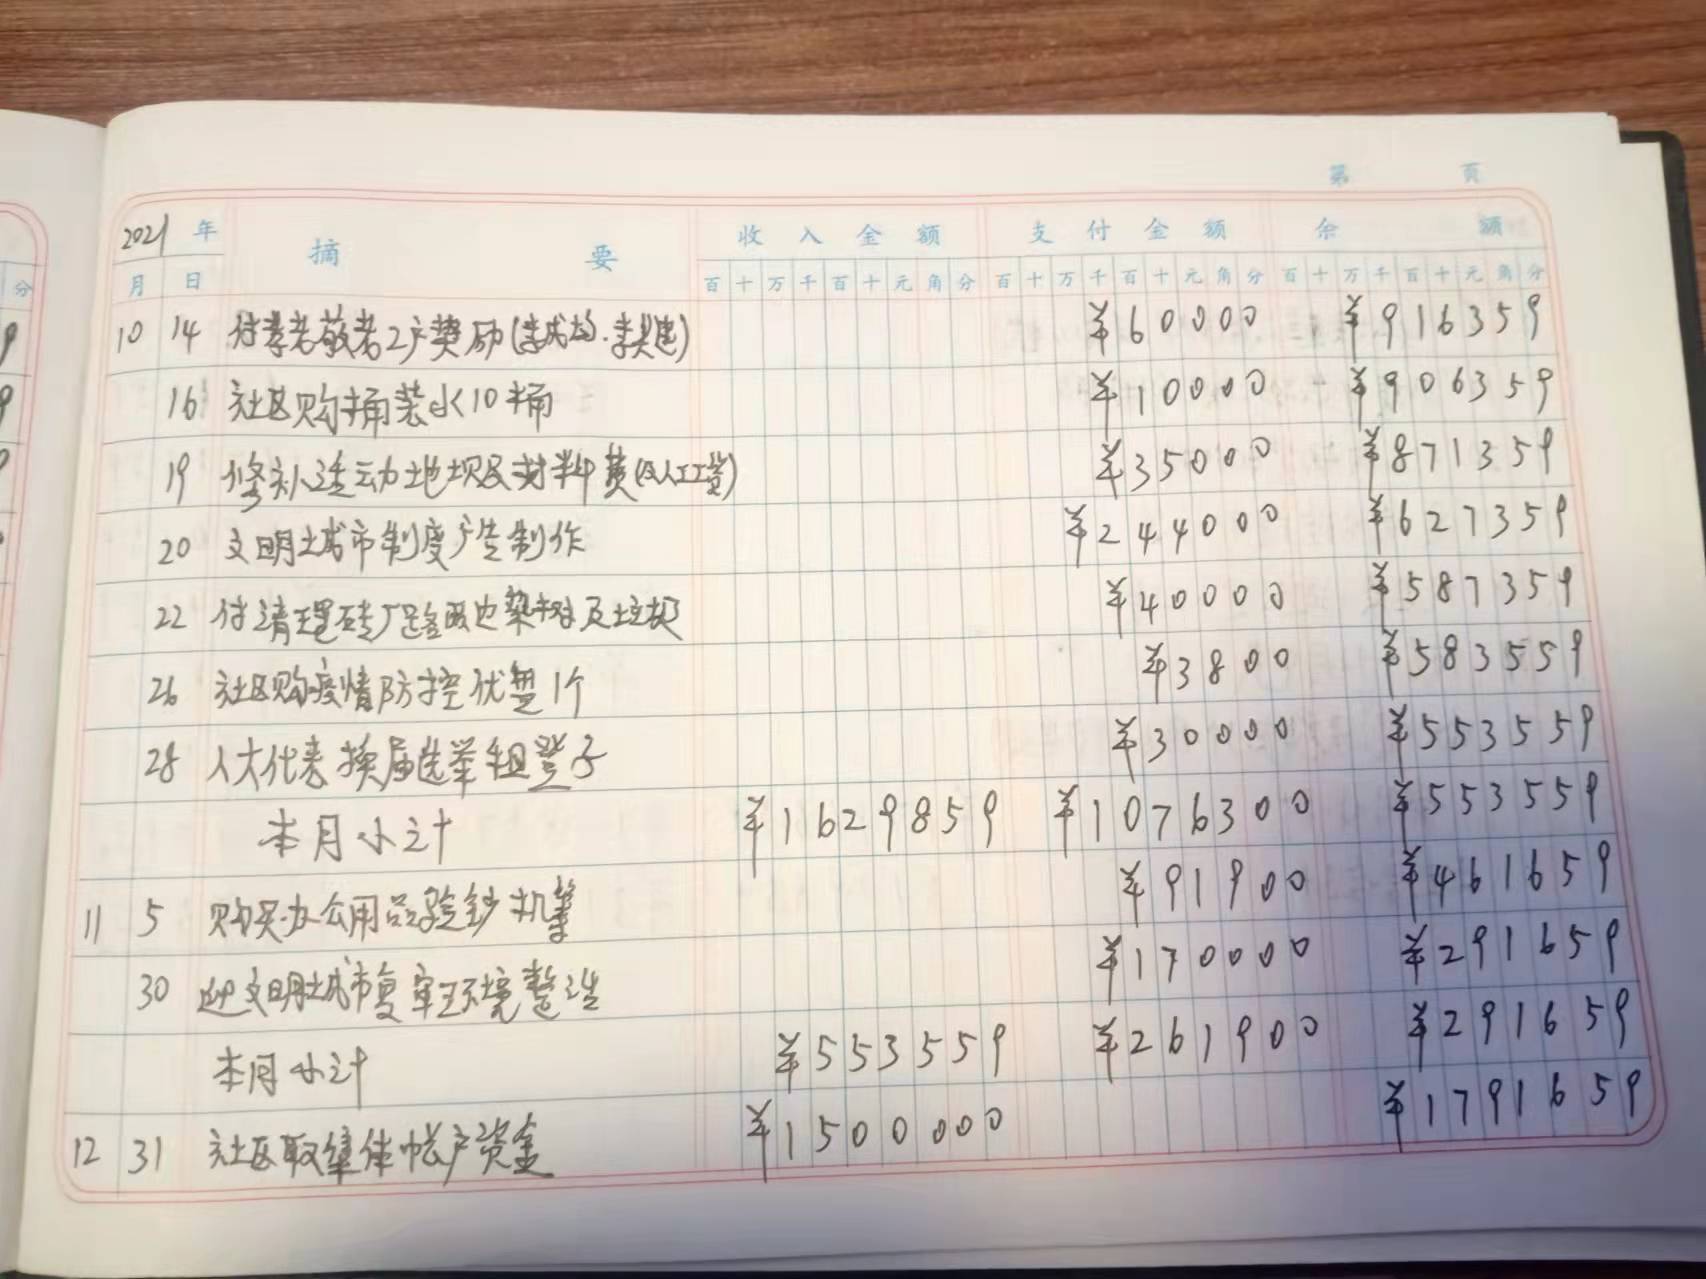 第 页
2021 年 摘 要 收 入 金 额 支 付 金 额 余 额
月 日 百 十 万 千 百 十 元 角 分 百 十 万 千 百 十 元 角 分 百 十 万 千 百 十 元 角 分
10 14 付孝老敬老2户奖励(李成均·李 ) ¥60000 ¥916359
16 社区购桶装水10桶 ¥10000 ¥906359
19 修补活动地坝及材料费(及人工工资) ¥35000 ¥871359
20 文明城市制度广告制作 ¥244000 ¥627359
22 付清理砖厂路两边 树及垃圾 ¥40000 ¥587359
26 社区购疫情防控优盘1个 ¥3800 ¥583559
28 人大代表换届选举租凳子 ¥30000 ¥553559
本月小计 ¥1629859 ¥1076300 ¥553559
11 5 购买办公用品验钞机等 ¥91900 ¥461659
30 迎文明城市复审环境整治 ¥170000 ¥291659
本月小计 ¥553559 ¥261900 ¥291659
12 31 社区取集体帐户资金 ¥1500000 ¥1791659
分